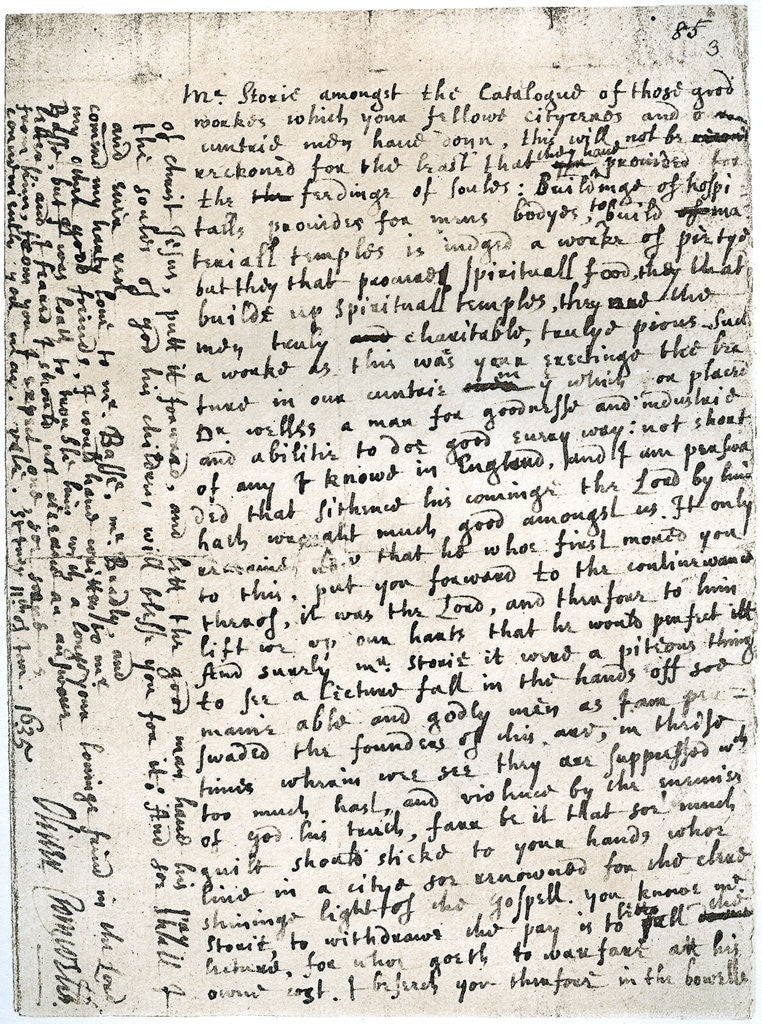 85
3
Mr. Storie amongst the Catalogue of those good
workes which your fellowe citycenes and our
cuntrie men have donn, this will not be
reckoned for the least that they have provided for
the feedinge of soules: Buildinge of hospi
talls provides for mens bodyes, to build ma
teriall temples is judged a worke of pietye
but they that procure spirituall food, they that
builde up spirituall temples, they are the
men truly charitable, trulye pious. Such
a worke as this was your erectinge the lec
ture in our cuntrie in ye which you placed
Dr. Welles a man for goodnesse and industrie
and abilitie to doe good every way: not short
of any I knowe in England, and I am perswa
ded that sithence his cominge the Lord by him
hath wrought much good amongst us. It only
remains now that he whoe first moved you
to this, put you forward to the continewance
therof, it was the Lord, and therfore to him
lift we up our harts that he would perfect itt
And surely mr. Storie it were a piteous thing
to see a lecture fall in the hands off soe
manie able and godly men as I am per-
swaded the founders of this are, in theise
times wherein wee see they are suppressed with
too much hast, and violence by the enemies
of god his truth, farr be it that soe much
guilt should sticke to your hands whoe
live in a citye soe renowned for the clere
shininge light of the Gospell. You knowe mr.
Storie to withdrawe the pay is to lett fall the
lecture, for whoe goeth to warfare att his
owne cost. I beseech you therfore in the bowells
of Christ Jesus, putt it forward, and lett the good man have his pay
the soules of god his children will bless you for it: And soe shall I
and ever rest your lovinge freind in the Lord
Oliver Cromwell
comend my harty love to mr. Busse, mr. Beadly, and
my other good freinds, I would have written to mr.
Busse, but I was loath to trouble him with a longe
letter, and I feared I should not receave an answer
from him, from you I expect one soe soone as
conveniently you may. vale. St Ives 11th of Jan. 1635